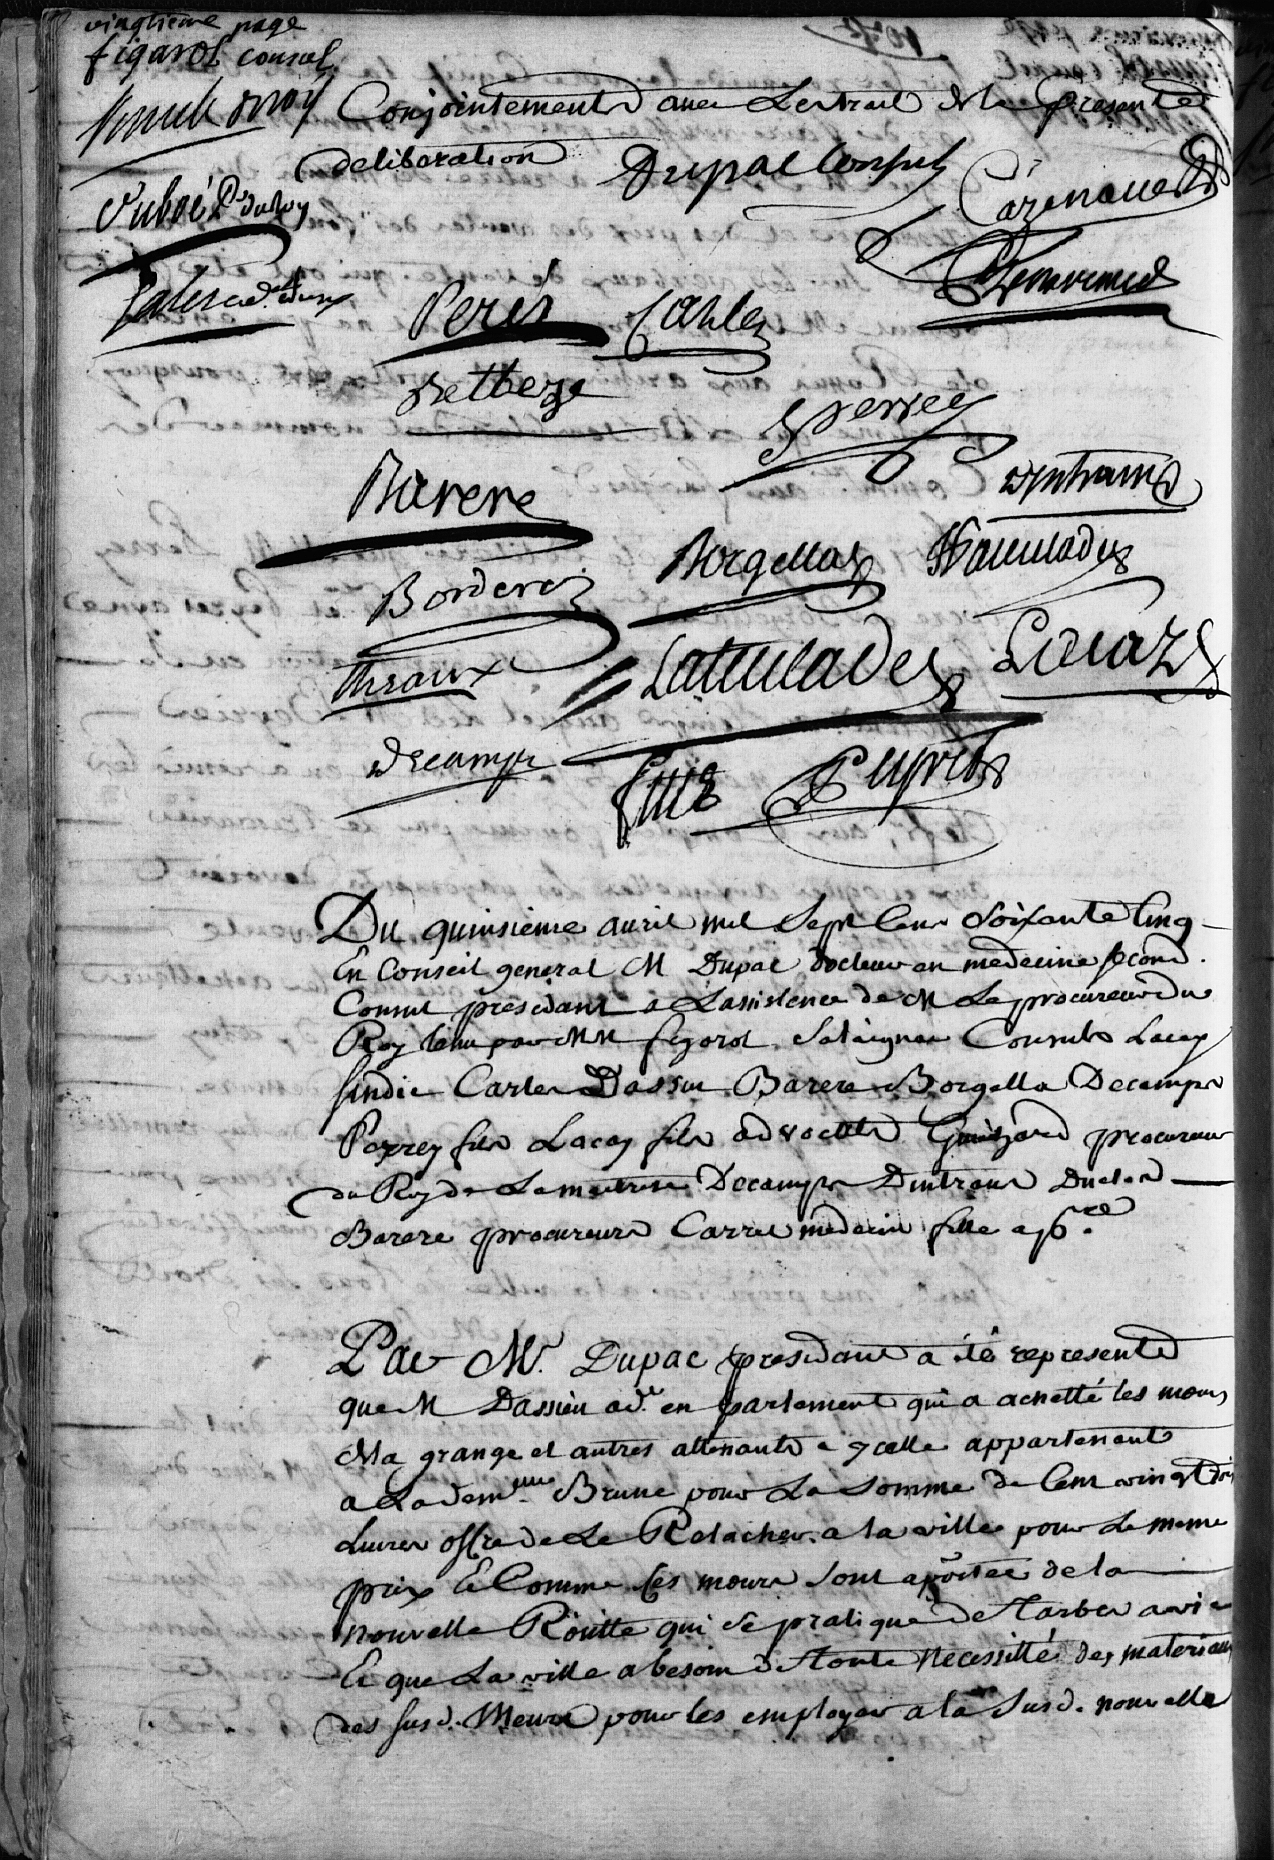 vingtieme page
figarol consul
Conjointement avec Lextrait de la presente
deliberation
Dupac Consul
Cazenaue
Perés Carles
Betbeze
Perrey
Barere
Dintrans
Borgella
Lacaze
Borderes
Latulade
Theaux
Decamps
Peyret
Du quinsieme auril mil Sept Cens Soixante Cinq
En Conseil general M Dupac docteur en medecine second
Consul presidant a Lassistence de M Le procureur du
Roy tenu par MM figarol Salaignac Consuls Lacay
sindic Carles Dassieu Barere Borgella Decamps
Perrey fils Lacay fils advocats Guinzard procureur
du Roy de Lamaitrise Decamps Dintrans Duclos
Barere procureurs Carrere medecin fille ap.re
Par Mr. Dupac presidant a été representé
que M Dassieu ad.t en parlement qui a achetté les meurs
de la grange et autres attenants a ycelle appartenant
a Lademlle Brune pour La Somme de Cent vingt
Livres offre de Le Relacher a la ville pour Le meme
prix Et Comme ces meurs sont a portée de la
nouvelle Routte qui se pratique de Tarbes a vic
Et que La ville a besoin de toute necessitté des materiaux
des susd. Meurs pour les employer a la Susd. nouvelle